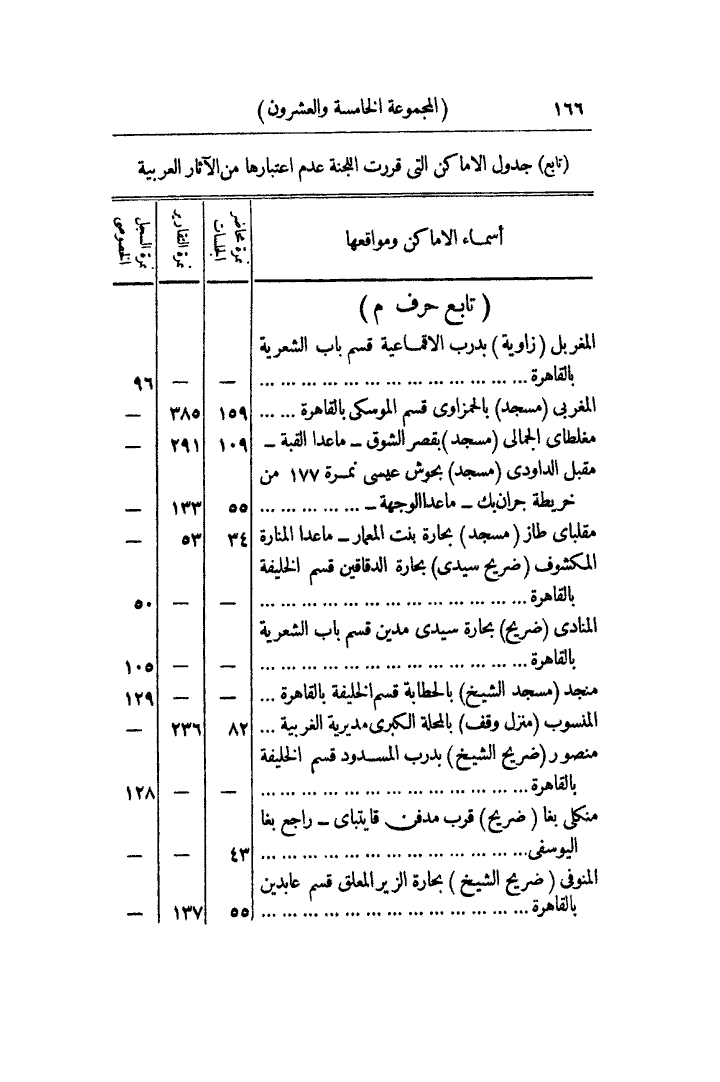 ١٦٦ (المجموعة الخامسة والعشرون)
(تابع) جدول الاماكن التى قررت اللجنة عدم اعتبارها من الآثار العربية
أسماء الاماكن ومواقعها | نمرة محاضر الجلسات | نمرة التقارير | نمرة السجل الخصوصى
(تابع حرف م)
المغربل (زاوية) بدرب الاقماعية قسم باب الشعرية
بالقاهرة ... ... ... ... ... ... ... ... ... ... ... ... ... — — ٩٦
المغربى (مسجد) بالحمزاوى قسم الموسكى بالقاهرة ... ... ١٥٩ ٣٨٥ —
مغلطاى الجمالى (مسجد) بقصر الشوق ــ ماعدا القبة ــ ١٠٩ ٢٩١ —
مقبل الداودى (مسجد) بحوش عيسى نمـرة ١٧٧ من
خريطة جران بك ــ ماعدا الوجهة ــ ... ... ... ... ... ٥٥ ١٣٣ —
مقلباى طاز (مسجد) بحارة بنت المعمار ــ ماعدا المنارة ٣٤ ٥٣ —
المكشوف (ضريح سيدى) بحارة الدقاقين قسم الخليفة
بالقاهرة ... ... ... ... ... ... ... ... ... ... ... ... ... — — ٥٠
المنادى (ضريح) بحارة سيدى مدين قسم باب الشعرية
بالقاهرة ... ... ... ... ... ... ... ... ... ... ... ... ... — — ١٠٥
منجد (مسجد الشيخ) بالحطابة قسم الخليفة بالقاهرة ... — — ١٢٩
المنسوب (منزل وقف) بالمحلة الكبرى مديرية الغربية ... ٨٢ ٢٣٦ —
منصور (ضريح الشيخ) بدرب المسـدود قسم الخليفة
بالقاهرة ... ... ... ... ... ... ... ... ... ... ... ... ... — — ١٢٨
منكلى بغا (ضريح) قرب مدفن قايتباى ــ راجع بغا
اليوسفى ... ... ... ... ... ... ... ... ... ... ... ... ... ٤٣ — —
المنوفى (ضريح الشيخ) بحارة الزير المعلق قسم عابدين
بالقاهرة ... ... ... ... ... ... ... ... ... ... ... ... ... ٥٥ ١٣٧ —